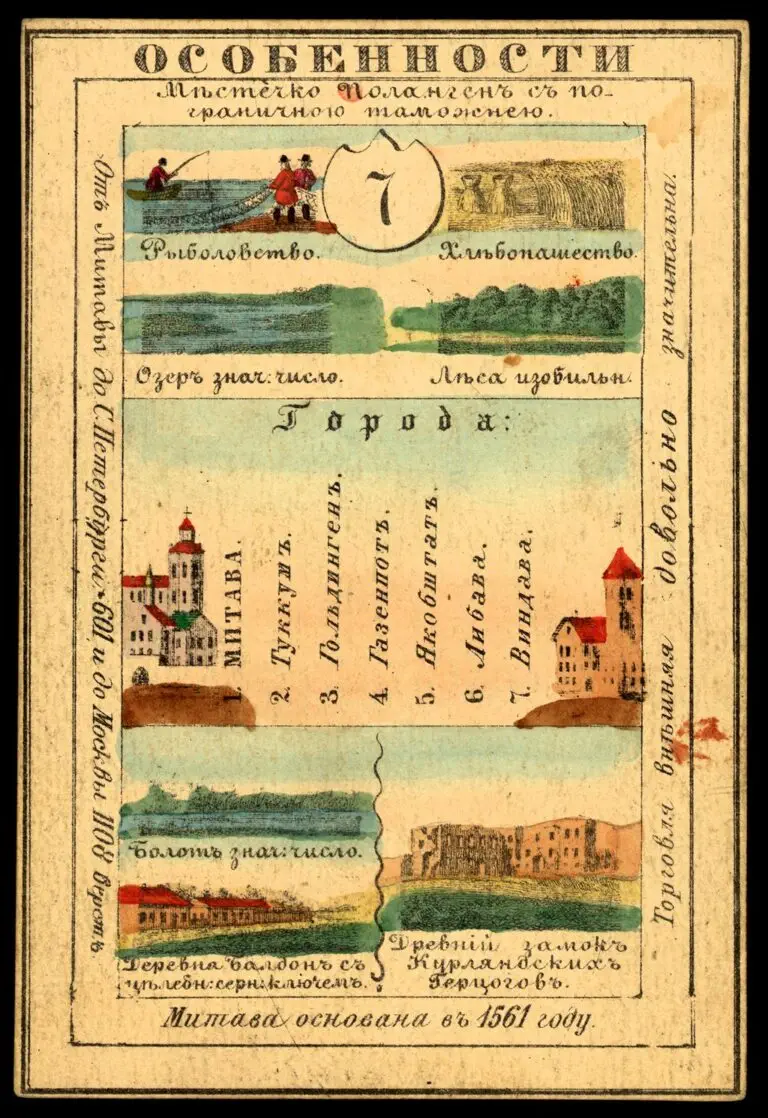 ОСОБЕННОСТИ
Мѣстечко Полангенъ съ по-
граничною таможнею.
7
Рыболовство.
Хлѣбопашество.
Озеръ знач: число.
Лѣса изобильн.
Города:
1. МИТАВА.
2. Туккумъ.
3. Гольдингенъ.
4. Газенпотъ.
5. Якобштатъ.
6. Либава.
7. Виндава.
Болотъ знач: число.
Деревня Балдонъ съ
цѣлебн: серн: ключемъ.
Древній замокъ
Курляндскихъ
Герцоговъ.
Митава основана въ 1561 году.
Отъ Митавы до С. Петербурга 601 и до Москвы 1108 верстъ
Торговля внѣшняя довольно значительна.